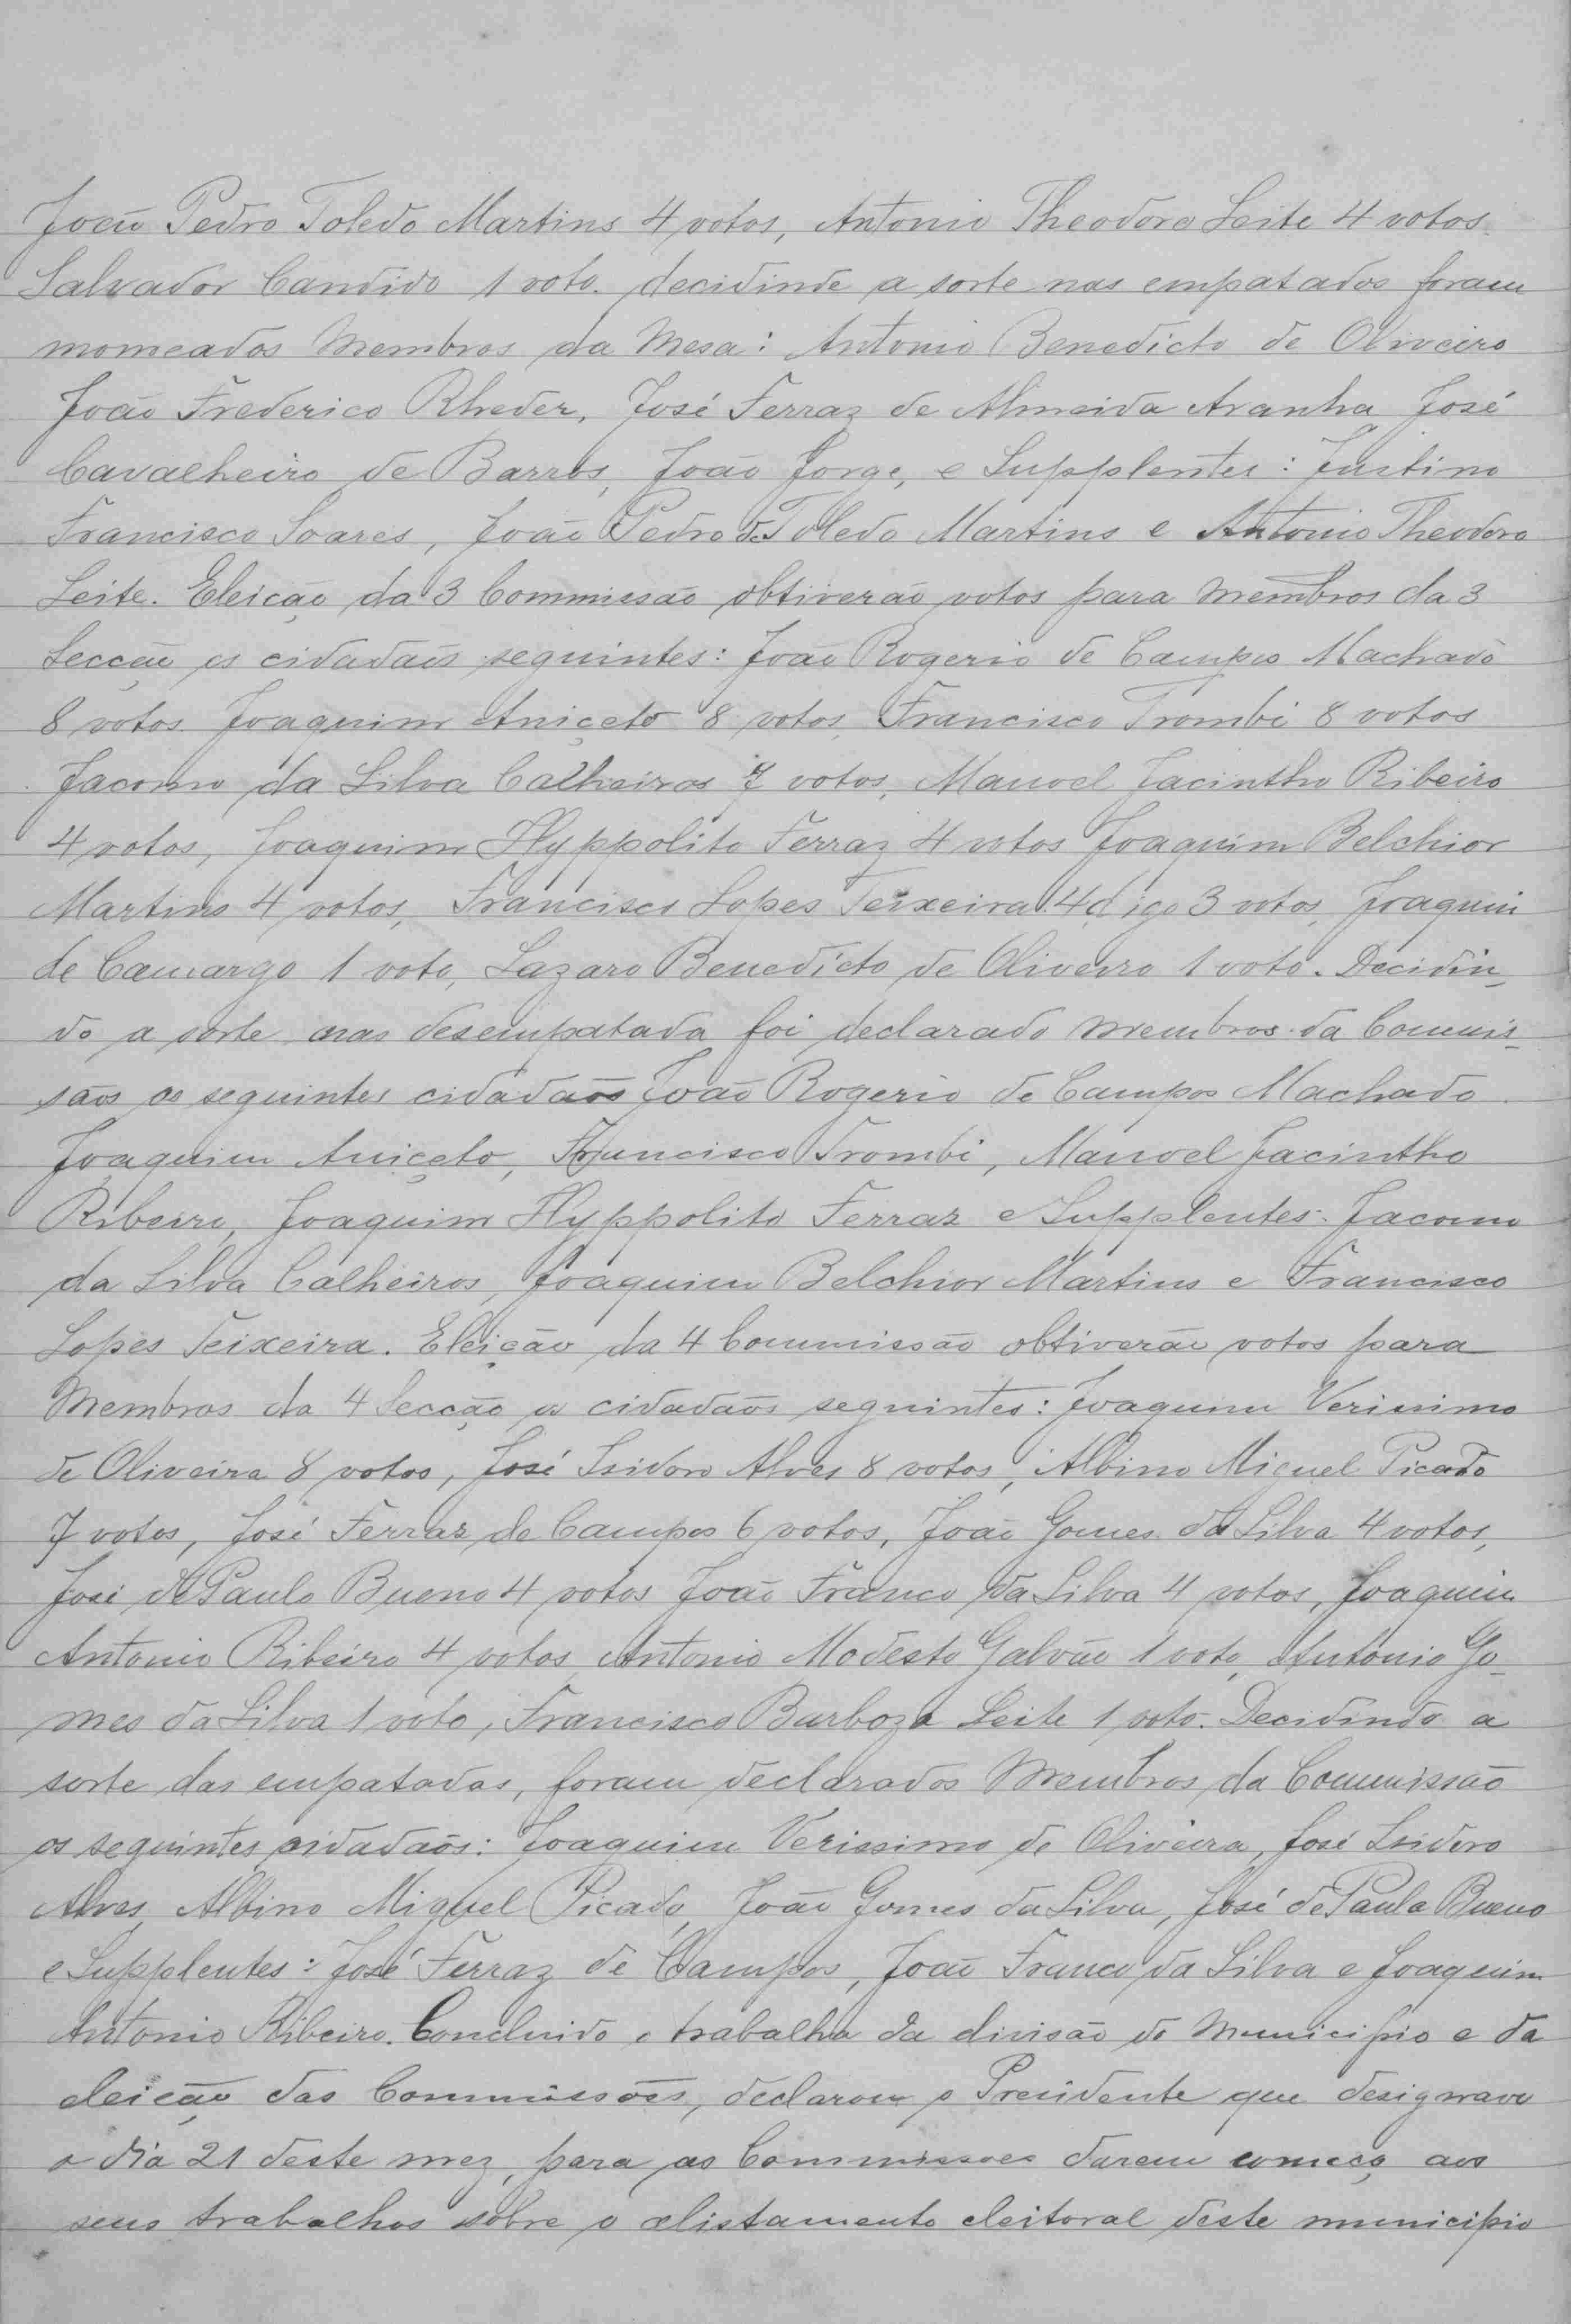 João Pedro Toledo Martins 4 votos, Antonio Theodoro Leite 4 votos.
Salvador Candido 1 voto. decidinde a sorte nas empatados foram
momeados Membros da Mesa: Antonio Benedicto de Oliveira
João Frederico Rheder, José Ferraz de Almeida Aranha José
Cavalheiro de Barros, João Jorge, e Supplentes: Justino
Francisco Soares, João Pedro de Toledo Martins e Antonio Theodoro
Leite. Eleição da 3 Commissão obtiverão votos para membros da 3
Secção os cidadaõs seguintes: João Rogerio de Campos Machado
8 votos Joaquim Aniçeto 8 votos, Francisco Trombi 8 votos
Jacomo da Silva Calheiros 7 votos, Manoel Jacintho Ribeiro
4 votos, Joaquim Hyppolito Ferraz 4 votos Joaquim Belchior
Martins 4 votos, Francisco Lopes Teixeira 4 digo 3 votos, Joaquim
de Camargo 1 voto, Lazaro Benedicto de Oliveira 1 voto. Decidin-
do a sorte nas desempatada foi declarado membros da Commis-
sãos os seguintes cidadaõs João Rogerio de Campos Machado
Joaquim Aniçeto, Francisco Trombi, Manoel Jacintho
Ribeiro, Joaquim Hyppolito Ferraz e Supplentes: Jacomo
da Silva Calheiros, Joaquim Belchior Martins e Francisco
Lopes Teixeira. Eleição da 4 Commissão obtiverão votos para
Membros da 4 Secção os cidadaõs seguintes: Joaquim Verissimo
de Oliveira 8 votos, José Isidoro Alves 8 votos, Albino Miguel Picado
7 votos, José Ferraz de Campos 6 votos, João Gomes da Silva 4 votos,
José de Paulo Bueno 4 votos João Franco da Silva 4 votos, Joaquim
Antonio Ribeiro 4 votos, Antonio Modesto Galvão 1 voto, Antonio Go-
mes da Silva 1 voto, Francisco Barboza Leite 1 voto. Decidindo a
sorte das empatadas, foram declarados Membros da Commissão
os seguintes cidadaõs: Joaquim Verissimo de Oliveira, José Isidoro
Alves, Albino Miguel Picado, João Gomes da Silva, José de Paula Bueno
e Supplentes: José Ferraz de Campos, João Franco da Silva e Joaquim
Antonio Ribeiro. Concluido o trabalho da divisão do Municipio e da
eleição das Commissões, declarou o Presidente que designava
o dia 21 deste mez, para as Commissoes darem começo aos
seus trabalhos sobre o alistamento eleitoral deste municipio